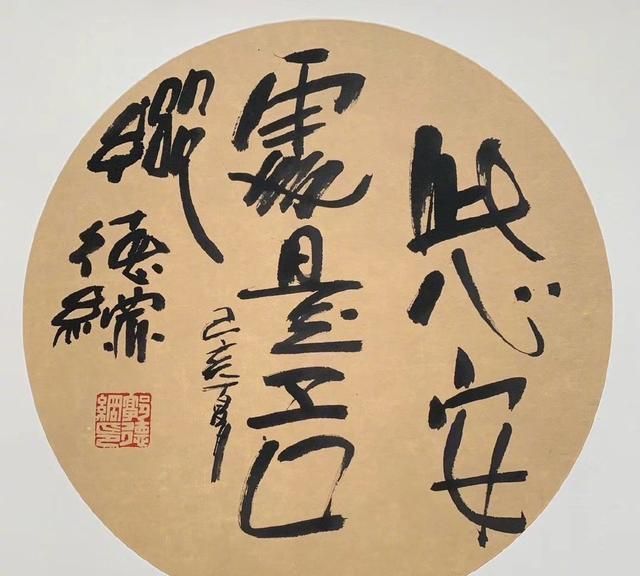 此心安
處是吾
鄉
己亥夏
德綱
郭德綱印